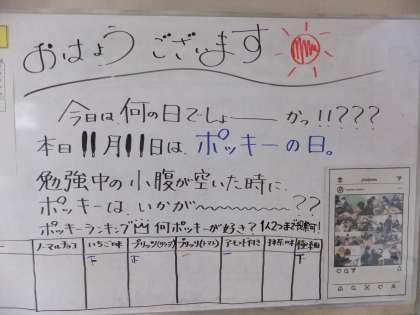 おはようございます
今日は何の日でしょーーかっ!!???
本日11月11日は、ポッキーの日。
勉強中の小腹が空いた時に
ポッキーは、いかが〜〜〜〜??
ポッキーランキング 何ポッキーが好き?1人2つまで投票可!
ノーマルチョコ いちご味 プリッツ(サラダ) プリッツ(トマト) アーモンド付き 抹茶味 極細
下 正 一 一 下